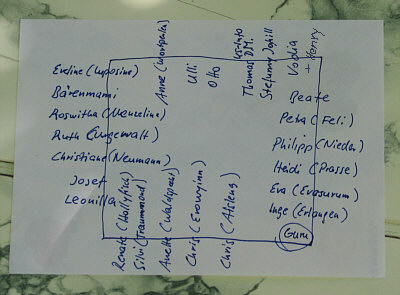 Eveline (Luposine)
Bärenmami
Roswitha (Menceline)
Ruth (Ungewalt)
Christiane (Neumann)
Josef
Leonilla
Anne
Ulli
Otto
Thomas DM.
Stefanny
Vodia
+ Henry
Beate
Petra (Feli)
Philipp (Nieden)
Heidi (Prasse)
Eva (Evasurum)
Inge (Erlangen)
Guru
Renate (Hollyfich)
Silvi (Traummond)
Anette (Waldspecht)
Chris (Erowynn)
Chris (Atileng)